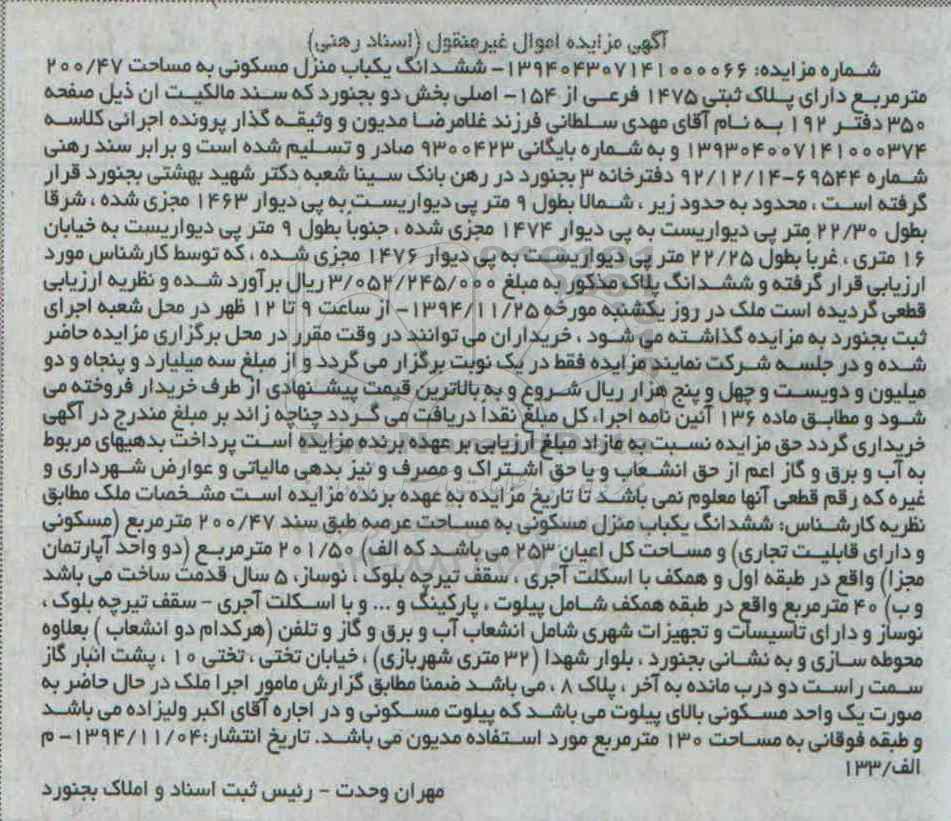 آگهی مزایده اموال غیرمنقول (اسناد رهنی)
شماره مزایده: ۱۳۹۴۰۴۳۰۷۱۴۱۰۰۰۰۶۶- ششدانگ یکباب منزل مسکونی به مساحت ۲۰۰/۴۷
مترمربع دارای پلاک ثبتی ۱۴۷۵ فرعی از ۱۵۴- اصلی بخش دو بجنورد که سند مالکیت ان ذیل صفحه
۳۵۰ دفتر ۱۹۲ به نام آقای مهدی سلطانی فرزند غلامرضا مدیون و وثیقه گذار پرونده اجرائی کلاسه
۱۳۹۳۰۴۰۰۷۱۴۱۰۰۰۳۷۴ و به شماره بایگانی ۹۳۰۰۴۲۳ صادر و تسلیم شده است و برابر سند رهنی
شماره ۶۹۵۴۴-۹۲/۱۲/۱۴ دفترخانه ۳ بجنورد در رهن بانک سینا شعبه دکتر شهید بهشتی بجنورد قرار
گرفته است ، محدود به حدود زیر ، شمالا بطول ۹ متر پی دیواریست به پی دیوار ۱۴۶۳ مجزی شده ، شرقا
بطول ۲۲/۳۰ متر پی دیواریست به پی دیوار ۱۴۷۴ مجزی شده ، جنوباً بطول ۹ متر پی دیواریست به خیابان
۱۶ متری ، غرباً بطول ۲۲/۲۵ متر پی دیواریست به پی دیوار ۱۴۷۶ مجزی شده ، که توسط کارشناس مورد
ارزیابی قرار گرفته و ششدانگ پلاک مذکور به مبلغ ۳/۰۵۲/۲۴۵/۰۰۰ ریال برآورد شده و نظریه ارزیابی
قطعی گردیده است ملک در روز یکشنبه مورخه ۱۳۹۴/۱۱/۲۵- از ساعت ۹ تا ۱۲ ظهر در محل شعبه اجرای
ثبت بجنورد به مزایده گذاشته می شود ، خریداران می توانند در وقت مقرر در محل برگزاری مزایده حاضر
شده و در جلسه شرکت نمایند مزایده فقط در یک نوبت برگزار می گردد و از مبلغ سه میلیارد و پنجاه و دو
میلیون و دویست و چهل و پنج هزار ریال شروع و به بالاترین قیمت پیشنهادی از طرف خریدار فروخته می
شود و مطابق ماده ۱۳۶ آئین نامه اجرا، کل مبلغ نقداً دریافت می گردد چناچه زائد بر مبلغ مندرج در آگهی
خریداری گردد حق مزایده نسبت به مازاد مبلغ ارزیابی بر عهده برنده مزایده است پرداخت بدهیهای مربوط
به آب و برق و گاز اعم از حق انشعاب و یا حق اشتراک و مصرف و نیز بدهی مالیاتی و عوارض شهرداری و
غیره که رقم قطعی آنها معلوم نمی باشد تا تاریخ مزایده به عهده برنده مزایده است مشخصات ملک مطابق
نظریه کارشناس: ششدانگ یکباب منزل مسکونی به مساحت عرصه طبق سند ۲۰۰/۴۷ مترمربع (مسکونی
و دارای قابلیت تجاری) و مساحت کل اعیان ۲۵۳ می باشد که الف) ۲۰۱/۵۰ مترمربع (دو واحد آپارتمان
مجزا) واقع در طبقه اول و همکف با اسکلت آجری ، سقف تیرچه بلوک ، نوساز، ۵ سال قدمت ساخت می باشد
و ب) ۴۰ مترمربع واقع در طبقه همکف شامل پیلوت ، پارکینگ و ... و با اسکلت آجری - سقف تیرچه بلوک ،
نوساز و دارای تاسیسات و تجهیزات شهری شامل انشعاب آب و برق و گاز و تلفن (هرکدام دو انشعاب ) بعلاوه
محوطه سازی و به نشانی بجنورد ، بلوار شهدا (۳۲ متری شهربازی) ، خیابان تختی ، تختی ۱۰ ، پشت انبار گاز
سمت راست دو درب مانده به آخر ، پلاک ۸ ، می باشد ضمنا مطابق گزارش مامور اجرا ملک در حال حاضر به
صورت یک واحد مسکونی بالای پیلوت می باشد که پیلوت مسکونی و در اجاره آقای اکبر ولیزاده می باشد
و طبقه فوقانی به مساحت ۱۳۰ مترمربع مورد استفاده مدیون می باشد. تاریخ انتشار:۱۳۹۴/۱۱/۰۴- م
الف/۱۳۳
مهران وحدت - رئیس ثبت اسناد و املاک بجنورد